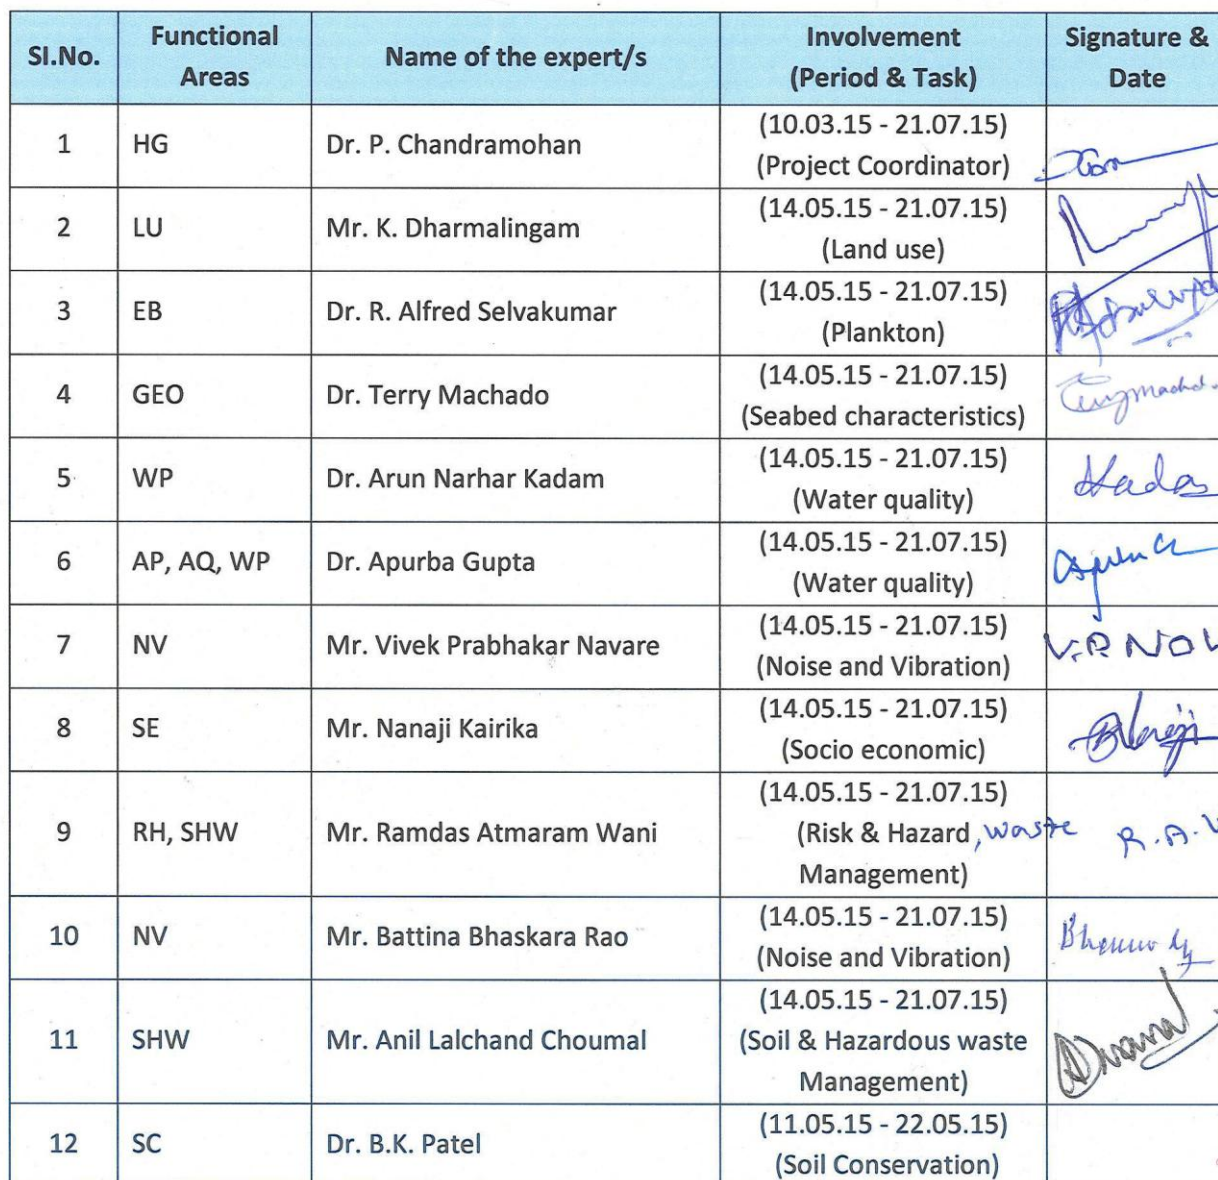 Sl.No. Functional Areas Name of the expert/s Involvement (Period & Task) Signature & Date
1 HG Dr. P. Chandramohan (10.03.15 - 21.07.15)
(Project Coordinator)
2 LU Mr. K. Dharmalingam (14.05.15 - 21.07.15)
(Land use)
3 EB Dr. R. Alfred Selvakumar (14.05.15 - 21.07.15)
(Plankton)
4 GEO Dr. Terry Machado (14.05.15 - 21.07.15)
(Seabed characteristics)
5 WP Dr. Arun Narhar Kadam (14.05.15 - 21.07.15)
(Water quality)
6 AP, AQ, WP Dr. Apurba Gupta (14.05.15 - 21.07.15)
(Water quality)
7 NV Mr. Vivek Prabhakar Navare (14.05.15 - 21.07.15)
(Noise and Vibration)
8 SE Mr. Nanaji Kairika (14.05.15 - 21.07.15)
(Socio economic)
9 RH, SHW Mr. Ramdas Atmaram Wani (14.05.15 - 21.07.15)
(Risk & Hazard, waste R.A.
Management)
10 NV Mr. Battina Bhaskara Rao (14.05.15 - 21.07.15)
(Noise and Vibration)
11 SHW Mr. Anil Lalchand Choumal (14.05.15 - 21.07.15)
(Soil & Hazardous waste
Management)
12 SC Dr. B.K. Patel (11.05.15 - 22.05.15)
(Soil Conservation)